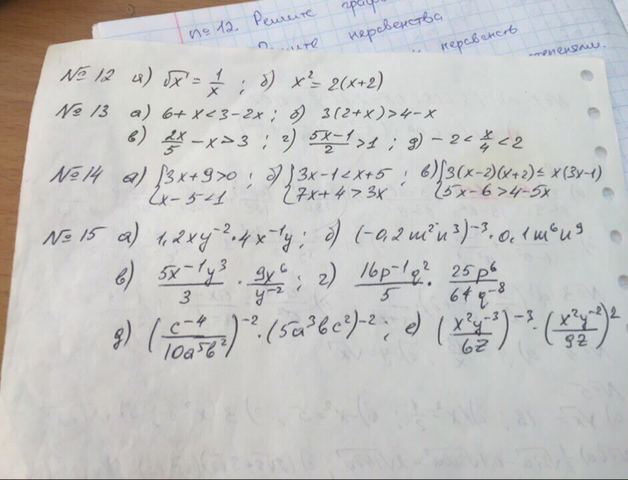 №12. Решите граф
Решите неравенства
неравенств
степенями.
№12 а) √x = 1/x ; б) x² = 2(x+2)
№13 а) 6+x<3-2x ; б) 3(2+x)>4-x
в) 2x/5 - x > 3 ; г) (5x-1)/2 > 1 ; д) -2 < x/4 < 2
№14 а) {3x+9>0 ; б) {3x-1<x+5 ; в) {3(x-2)(x+2) ≤ x(3x-1)
{x-5<1 {7x+4>3x {5x-6>4-5x
№15 а) 1,2xy⁻²·4x⁻¹y ; б) (-0,2m²n³)⁻³·0,1m⁶n⁹
в) 5x⁻¹y³/3 · 9x⁶/y⁻² ; г) 16p⁻¹q²/5 · 25p⁶/64q⁻⁸
д) (c⁻⁴/10a⁵b²)⁻²·(5a³bc²)⁻² ; е) (x²y⁻³/6z)⁻³·(x²y⁻²/9z)²